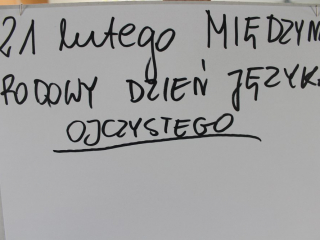 21 lutego MIĘDZYN
RODOWY DZIEŃ JĘZYK
OJCZYSTEGO